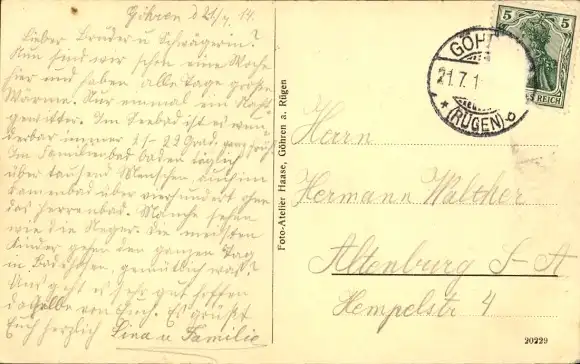 Göhren d 21/7. 14.
Lieber Bruder u Schwägerin!
Nun sind wir schon eine Woche
hier und haben alle Tage große
Wärme. Nur einmal ein Nacht
gewitter. Im Seebad ist es wun
derbar immer 21-22 Grad, ganz früh
Im Familienbad baden täglich
über tausend Menschen, auch im
Damenbad über vierhundert ohne
das Herrenbad. Manche sehen
wie die Neger. Die meisten
Kinder gehen den ganzen Tag
in Badehosen, gemütlich was?
Uns geht es sehr gut hoffen
dasselbe von Euch. Es grüßt
Euch herzlich Lina u Familie
Foto-Atelier Haase, Göhren a. Rügen
5 5
REICH
GÖH
21.7.1
* (RÜGEN) b
Herrn
Hermann Walther
Altenburg S-A
Hempelstr 4
20229